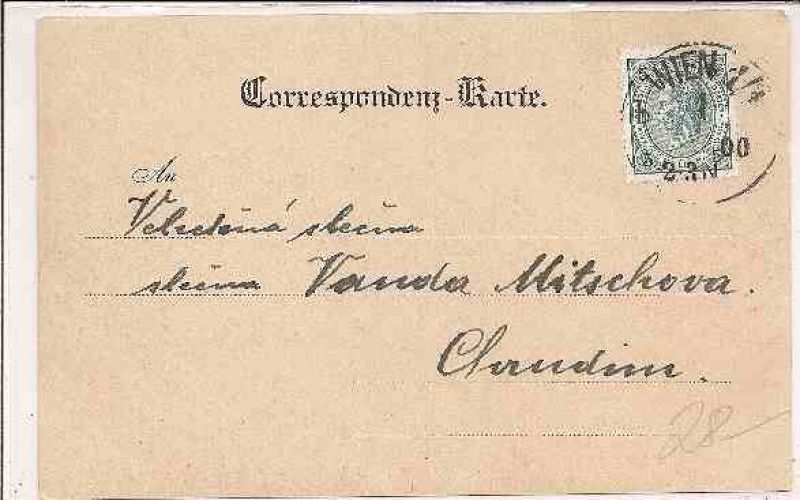 Correspondenz-Karte.
WIEN 1/1
90
2-3.N
An
Velectěná slečna
slečna Vanda Mitschova.
Chrudim.
28